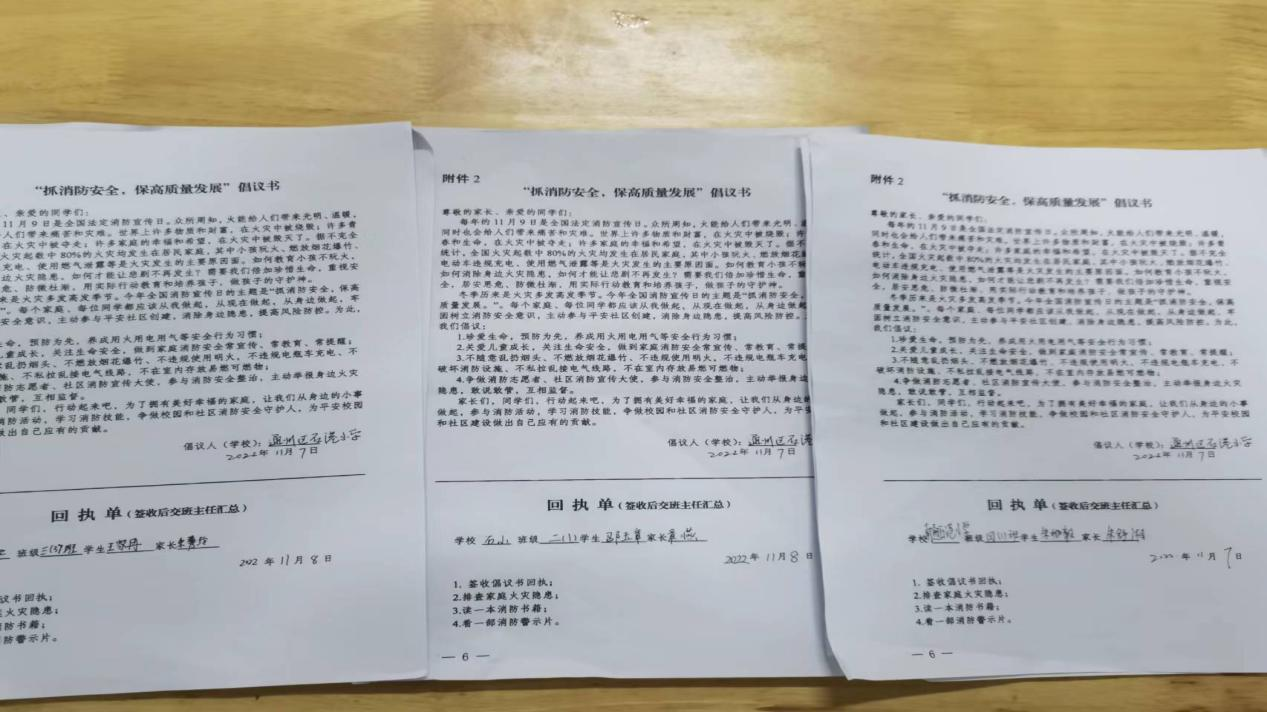 “抓消防安全，保高质量发展”倡议书
、亲爱的同学们：
11月9日是全国法定消防宣传日。众所周知，火能给人们带来光明、温暖，
会给人们带来痛苦和灾难。世界上许多物质和财富，在火灾中被烧毁；许多青
在火灾中被夺走；许多家庭的幸福和希望，在火灾中被毁灭了。据不完全
火灾起数中80%的火灾均发生在居民家庭，其中小孩玩火、燃放烟花爆竹、
充电、使用燃气泄露等是火灾发生的主要原因面。如何教育小孩不玩火，
边火灾隐患，如何才能让悲剧不再发生？需要我们倍加珍惜生命，重视安
危、防微杜渐，用实际行动教育和培养孩子，做孩子的守护神。
来是火灾多发高发季节。今年全国消防宣传日的主题是“抓消防安全，保高
”。每个家庭、每位同学都应该从我做起，从现在做起，从身边做起，牢
安全意识，主动参与平安社区创建，消除身边隐患，提高风险防控。为此，
生命，预防为先，养成用火用电用气等安全行为习惯；
儿童成长，关注生命安全，做到家庭消防安全常宣传、常教育、常提醒；
意乱扔烟头、不燃放烟花爆竹、不违规使用明火，不违规电瓶车充电、不
、不私拉乱接电气线路，不在室内存放易燃可燃物；
防志愿者、社区消防宣传大使，参与消防安全整治，主动举报身边火灾
敢管，互相监督。
同学们，行动起来吧，为了拥有美好幸福的家庭，让我们从身边的小事
消防活动，学习消防技能，争做校园和社区消防安全守护人，为平安校园
做出自己应有的贡献。
倡议人（学校）：
2022年11月7日
回执单（签收后交班主任汇总）
班级 学生 家长
年11月8日
议书回执；
火灾隐患；
防书籍；
防警示片。
附件2
“抓消防安全，保高质量发展”倡议书
尊敬的家长、亲爱的同学们：
每年的11月9日是全国法定消防宣传日。众所周知，火能给人们带来光明、温
同时也会给人们带来痛苦和灾难。世界上许多物质和财富，在火灾中被烧毁；许
春和生命，在火灾中被夺走；许多家庭的幸福和希望，在火灾中被毁灭了。据不
统计，全国火灾起数中80%的火灾均发生在居民家庭，其中小孩玩火、燃放烟花
电动车违规充电、使用燃气泄露等是火灾发生的主要原因面。如何教育小孩不
如何消除身边火灾隐患，如何才能让悲剧不再发生？需要我们倍加珍惜生命，重
全，居安思危、防微杜渐，用实际行动教育和培养孩子，做孩子的守护神。
冬季历来是火灾多发高发季节。今年全国消防宣传日的主题是“抓消防安全，
质量发展。”。每个家庭、每位同学都应该从我做起，从现在做起，从身边做起，
固树立消防安全意识，主动参与平安社区创建，消除身边隐患，提高风险防控。
我们倡议：
1.珍爱生命，预防为先，养成用火用电用气等安全行为习惯；
2.关爱儿童成长，关注生命安全，做到家庭消防安全常宣传、常教育、常提
3.不随意乱扔烟头、不燃放烟花爆竹、不违规使用明火，不违规电瓶车充电
破坏消防设施、不私拉乱接电气线路，不在室内存放易燃可燃物；
4.争做消防志愿者、社区消防宣传大使，参与消防安全整治，主动举报身边
隐患，敢说敢管，互相监督。
家长们，同学们，行动起来吧，为了拥有美好幸福的家庭，让我们从身边的
做起，参与消防活动，学习消防技能，争做校园和社区消防安全守护人，为平安
和社区建设做出自己应有的贡献。
倡议人（学校）：
2022年11月7日
回执单（签收后交班主任汇总）
学校 班级 二(1) 学生 家长
2022年11月8日
1.签收倡议书回执；
2.排查家庭火灾隐患；
3.读一本消防书籍；
4.看一部消防警示片。
— 6 —
附件2
“抓消防安全，保高质量发展”倡议书
尊敬的家长、亲爱的同学们：
每年的11月9日是全国法定消防宣传日。众所周知，火能给人们带来光明、温暖，
同时也会给人们带来痛苦和灾难。世界上许多物质和财富，在火灾中被烧毁；许多青
春和生命，在火灾中被夺走；许多家庭的幸福和希望，在火灾中被毁灭了。据不完全
统计，全国火灾起数中80%的火灾均发生在居民家庭，其中小孩玩火、燃放烟花爆竹、
电动车违规充电、使用燃气泄露等是火灾发生的主要原因面。如何教育小孩不玩火，
如何消除身边火灾隐患，如何才能让悲剧不再发生？需要我们倍加珍惜生命，重视安
全，居安思危、防微杜渐，用实际行动教育和培养孩子，做孩子的守护神。
冬季历来是火灾多发高发季节。今年全国消防宣传日的主题是“抓消防安全，保高
质量发展。”。每个家庭、每位同学都应该从我做起，从现在做起，从身边做起，牢
固树立消防安全意识，主动参与平安社区创建，消除身边隐患，提高风险防控。为此，
我们倡议：
1.珍爱生命，预防为先，养成用火用电用气等安全行为习惯；
2.关爱儿童成长，关注生命安全，做到家庭消防安全常宣传、常教育、常提醒；
3.不随意乱扔烟头、不燃放烟花爆竹、不违规使用明火，不违规电瓶车充电、不
破坏消防设施、不私拉乱接电气线路，不在室内存放易燃可燃物；
4.争做消防志愿者、社区消防宣传大使，参与消防安全整治，主动举报身边火灾
隐患，敢说敢管，互相监督。
家长们，同学们，行动起来吧，为了拥有美好幸福的家庭，让我们从身边的小事
做起，参与消防活动，学习消防技能，争做校园和社区消防安全守护人，为平安校园
和社区建设做出自己应有的贡献。
倡议人（学校）：
2022年11月7日
回执单（签收后交班主任汇总）
学校 班级 学生 家长
年11月7日
1.签收倡议书回执；
2.排查家庭火灾隐患；
3.读一本消防书籍；
4.看一部消防警示片。
— 6 —